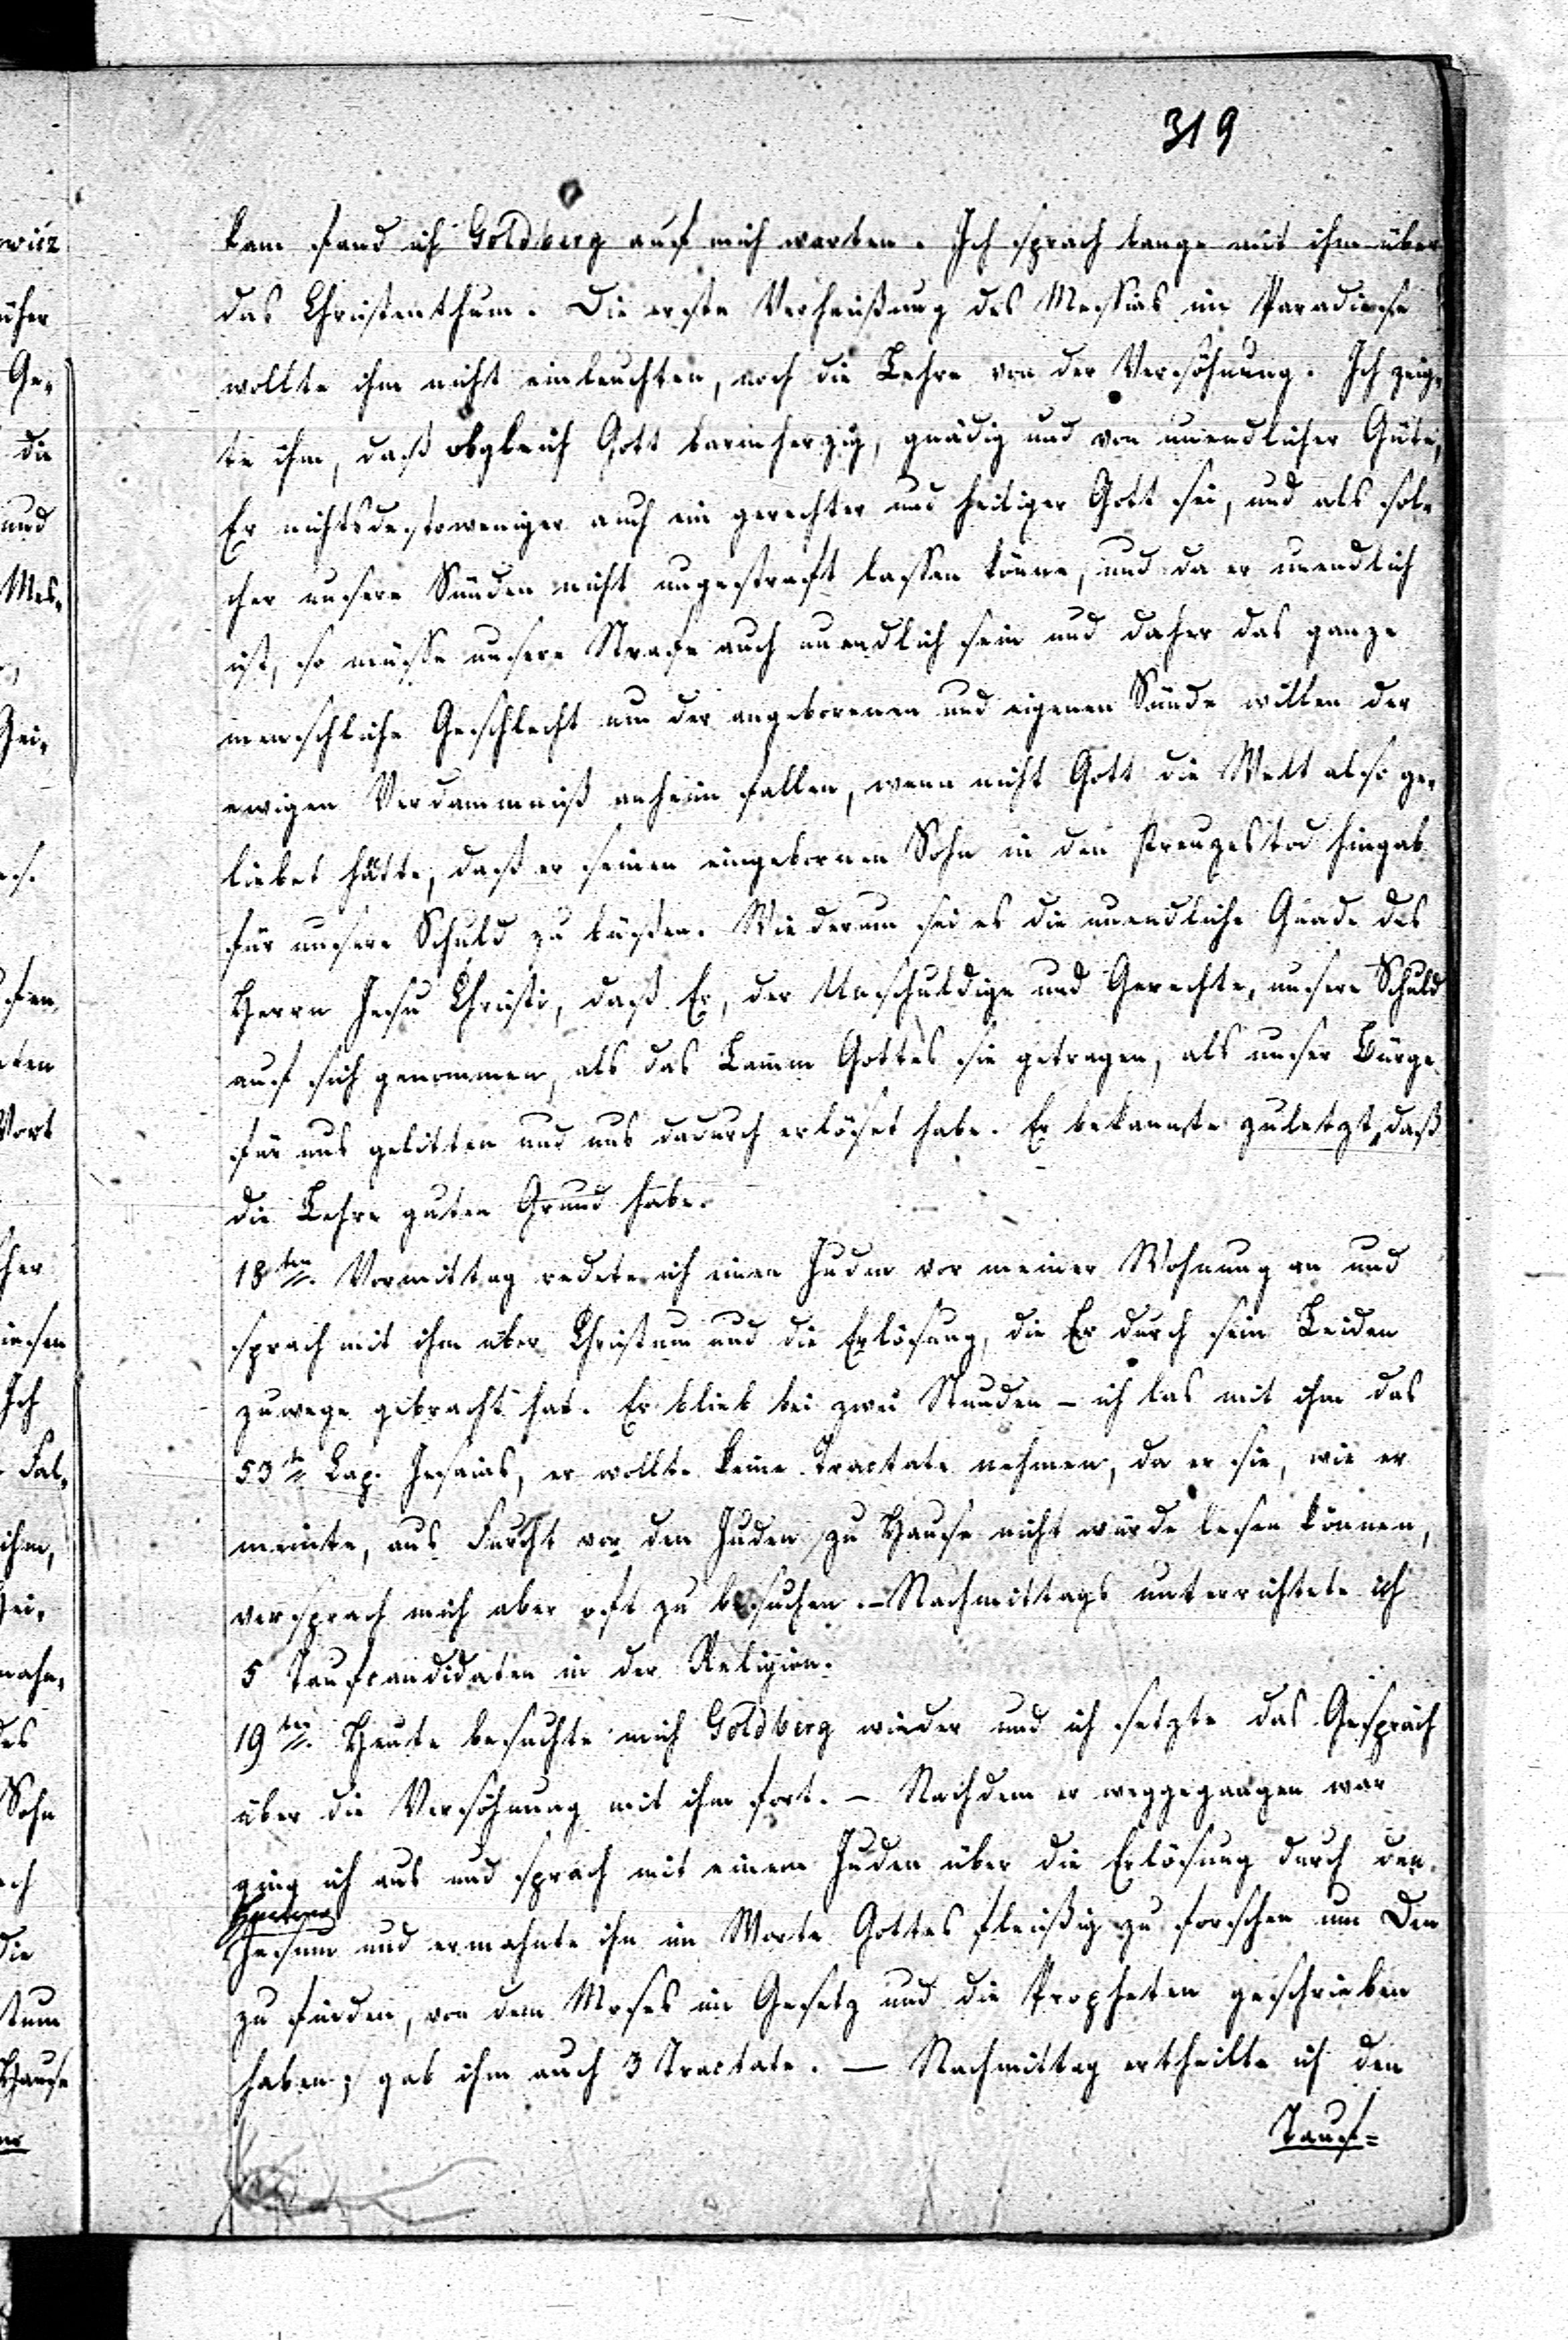 319
kam fand ich Goldberg auf mich warten. Ich sprach lange mit ihm über
das Christenthum. Die erste Verheißung des Messias im Paradiese
wollte ihm nicht einleuchten, noch die Lehre von der Versöhnung. Ich zeig-
te ihm, daß obgleich Gott barmherzig, gnädig und von unendlicher Güte,
Er nichtsdestoweniger auch ein gerechter und heiliger Gott sei, und als sol-
cher unsere Sünden nicht ungestraft lassen könne, und da er unendlich
ist, so müsse unsere Strafe auch unendlich sein und daher das ganze
menschliche Geschlecht um der angeborenen und eigenen Sünde willen der
ewigen Verdammniß anheim fallen, wenn nicht Gott die Welt also ge-
liebet hätte, daß er seinen eingebornen Sohn in den Kreuzestod hingab
für unsere Schuld zu büßen. Wiederum sei es die unendliche Gnade des
Herrn Jesu Christi, daß Er, der Unschuldige und Gerechte, unsere Schuld
auf sich genommen, als das Lamm Gottes sie getragen, als unser Bürge
für uns gelitten und uns dadurch erlöset habe. Er bekannte zuletzt, daß
die Lehre guten Grund habe.
18ten. Vormittag redete ich einen Juden vor meiner Wohnung an und
sprach mit ihm über Christum und die Erlösung, die Er durch sein Leiden
zuwege gebracht hat. Er blieb bei zwei Stunden – ich las mit ihm das
53te Cap. Jesaias, er wollte keine Tractate nehmen, da er sie, wie er
meinte, aus Furcht vor den Juden zu Hause nicht würde lesen können,
versprach mich aber oft zu besuchen. – Nachmittags unterrichtete ich
5 Taufcandidaten in der Religion.
19ten. Heute besuchte mich Goldberg wieder und ich setzte das Gespräch
über die Versöhnung mit ihm fort. – Nachdem er weggegangen war
ging ich aus und sprach mit einem Juden über die Erlösung durch den
Herrn
Jesum und ermahnte ihn im Worte Gottes fleißig zu forschen um Den
zu finden, von dem Moses im Gesetz und die Propheten geschrieben
haben; gab ihm auch 3 Tractate. – Nachmittag ertheilte ich den
Tauf=